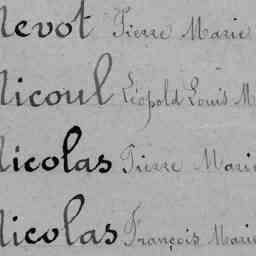 Nevot Pierre Marie
Nicoul Léopold Louis M
Nicolas Pierre Marie
Nicolas François Marie